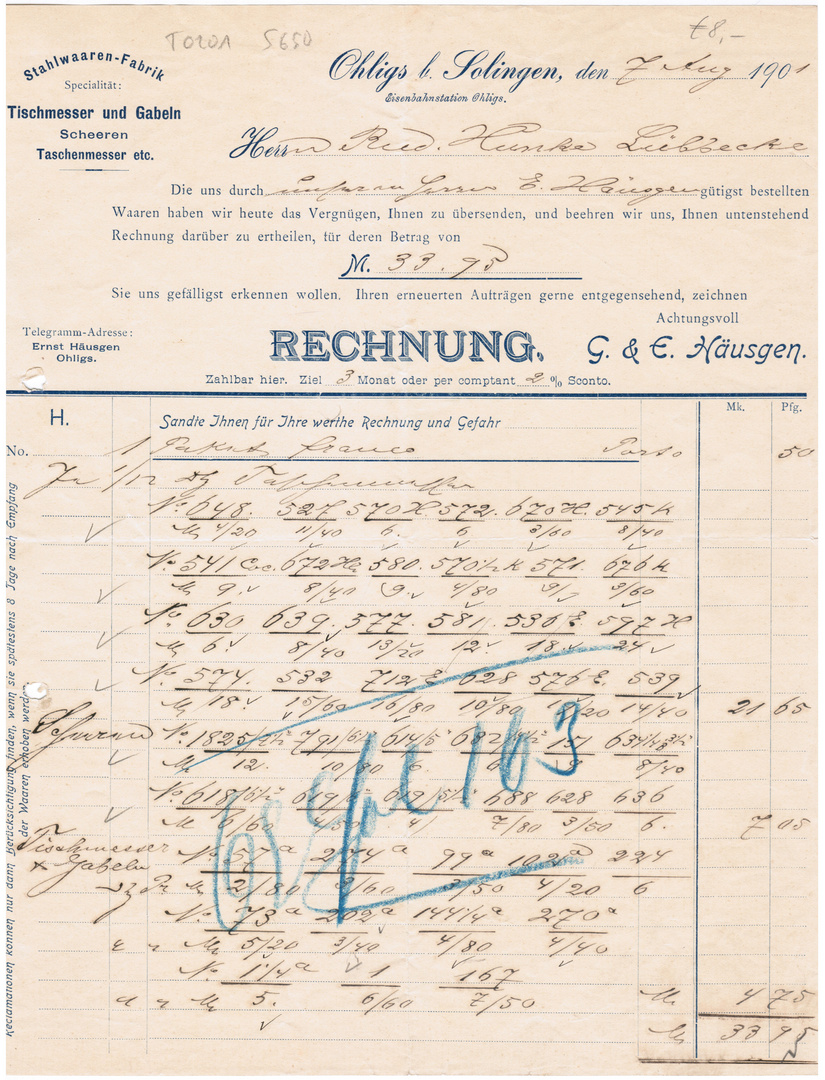 TOZOA 5650
€8,-
Stahlwaaren-Fabrik
Specialität:
Tischmesser und Gabeln
Scheeren
Taschenmesser etc.
Ohligs b. Solingen, den 7 Aug 1901
Eisenbahnstation Ohligs.
Herrn Rud. Hunke Lübbecke
Die uns durch unseren Herrn E. Häusgen gütigst bestellten
Waaren haben wir heute das Vergnügen, Ihnen zu übersenden, und beehren wir uns, Ihnen untenstehend
Rechnung darüber zu ertheilen, für deren Betrag von
M. 33.95
Sie uns gefälligst erkennen wollen. Ihren erneuerten Aufträgen gerne entgegensehend, zeichnen
Achtungsvoll
Telegramm-Adresse:
Ernst Häusgen
Ohligs.
RECHNUNG.
G. & E. Häusgen.
Zahlbar hier. Ziel 3 Monat oder per comptant 2 % Sconto.
Mk. Pfg.
H. Sandte Ihnen für Ihre werthe Rechnung und Gefahr
No. 1 Paket franco Porto 50
Je 1/12 Dz Taschenmesser
No 648. 527 570 H. 572. 670 H. 545 K
M 4/20 11/40 6. 6. 3/60 8/40
No 541 Coc. 672 580. 570 1/2 K 571 676 K
M 9. 8/40 9. 4/80 9 3/60
No 630 639. 577. 581. 536 E. 597 H
M 6 8/40 13/20 12. 18. 24
No 574. 532 712 E. 628 576 E. 539
M 18 15/60 16/80 10/80 8/20 14/40 21 65
Scheeren No 1825 791 614 682 151 634
M 12. 10/80 6 6 9 8/40
No 618 619 619 688 628 636
M 6/60 4/50 4 7/80 3/50 6. 7 05
Tischmesser
+ Gabeln No 57 a 274 a 99 a 102 a 224
M 2/80 3/60 3/50 4/20 6
No 73 a 202 a 144 1/4 a 270 a
M 5/20 3/40 4/80 4/40
No 1 1/4 a 1 167
M 5. 6/60 7/50 M 4 75
M 33 95
Reclamationen können nur dann Berücksichtigung finden, wenn sie spätestens 8 Tage nach Empfang
der Waaren erhoben werden.
163